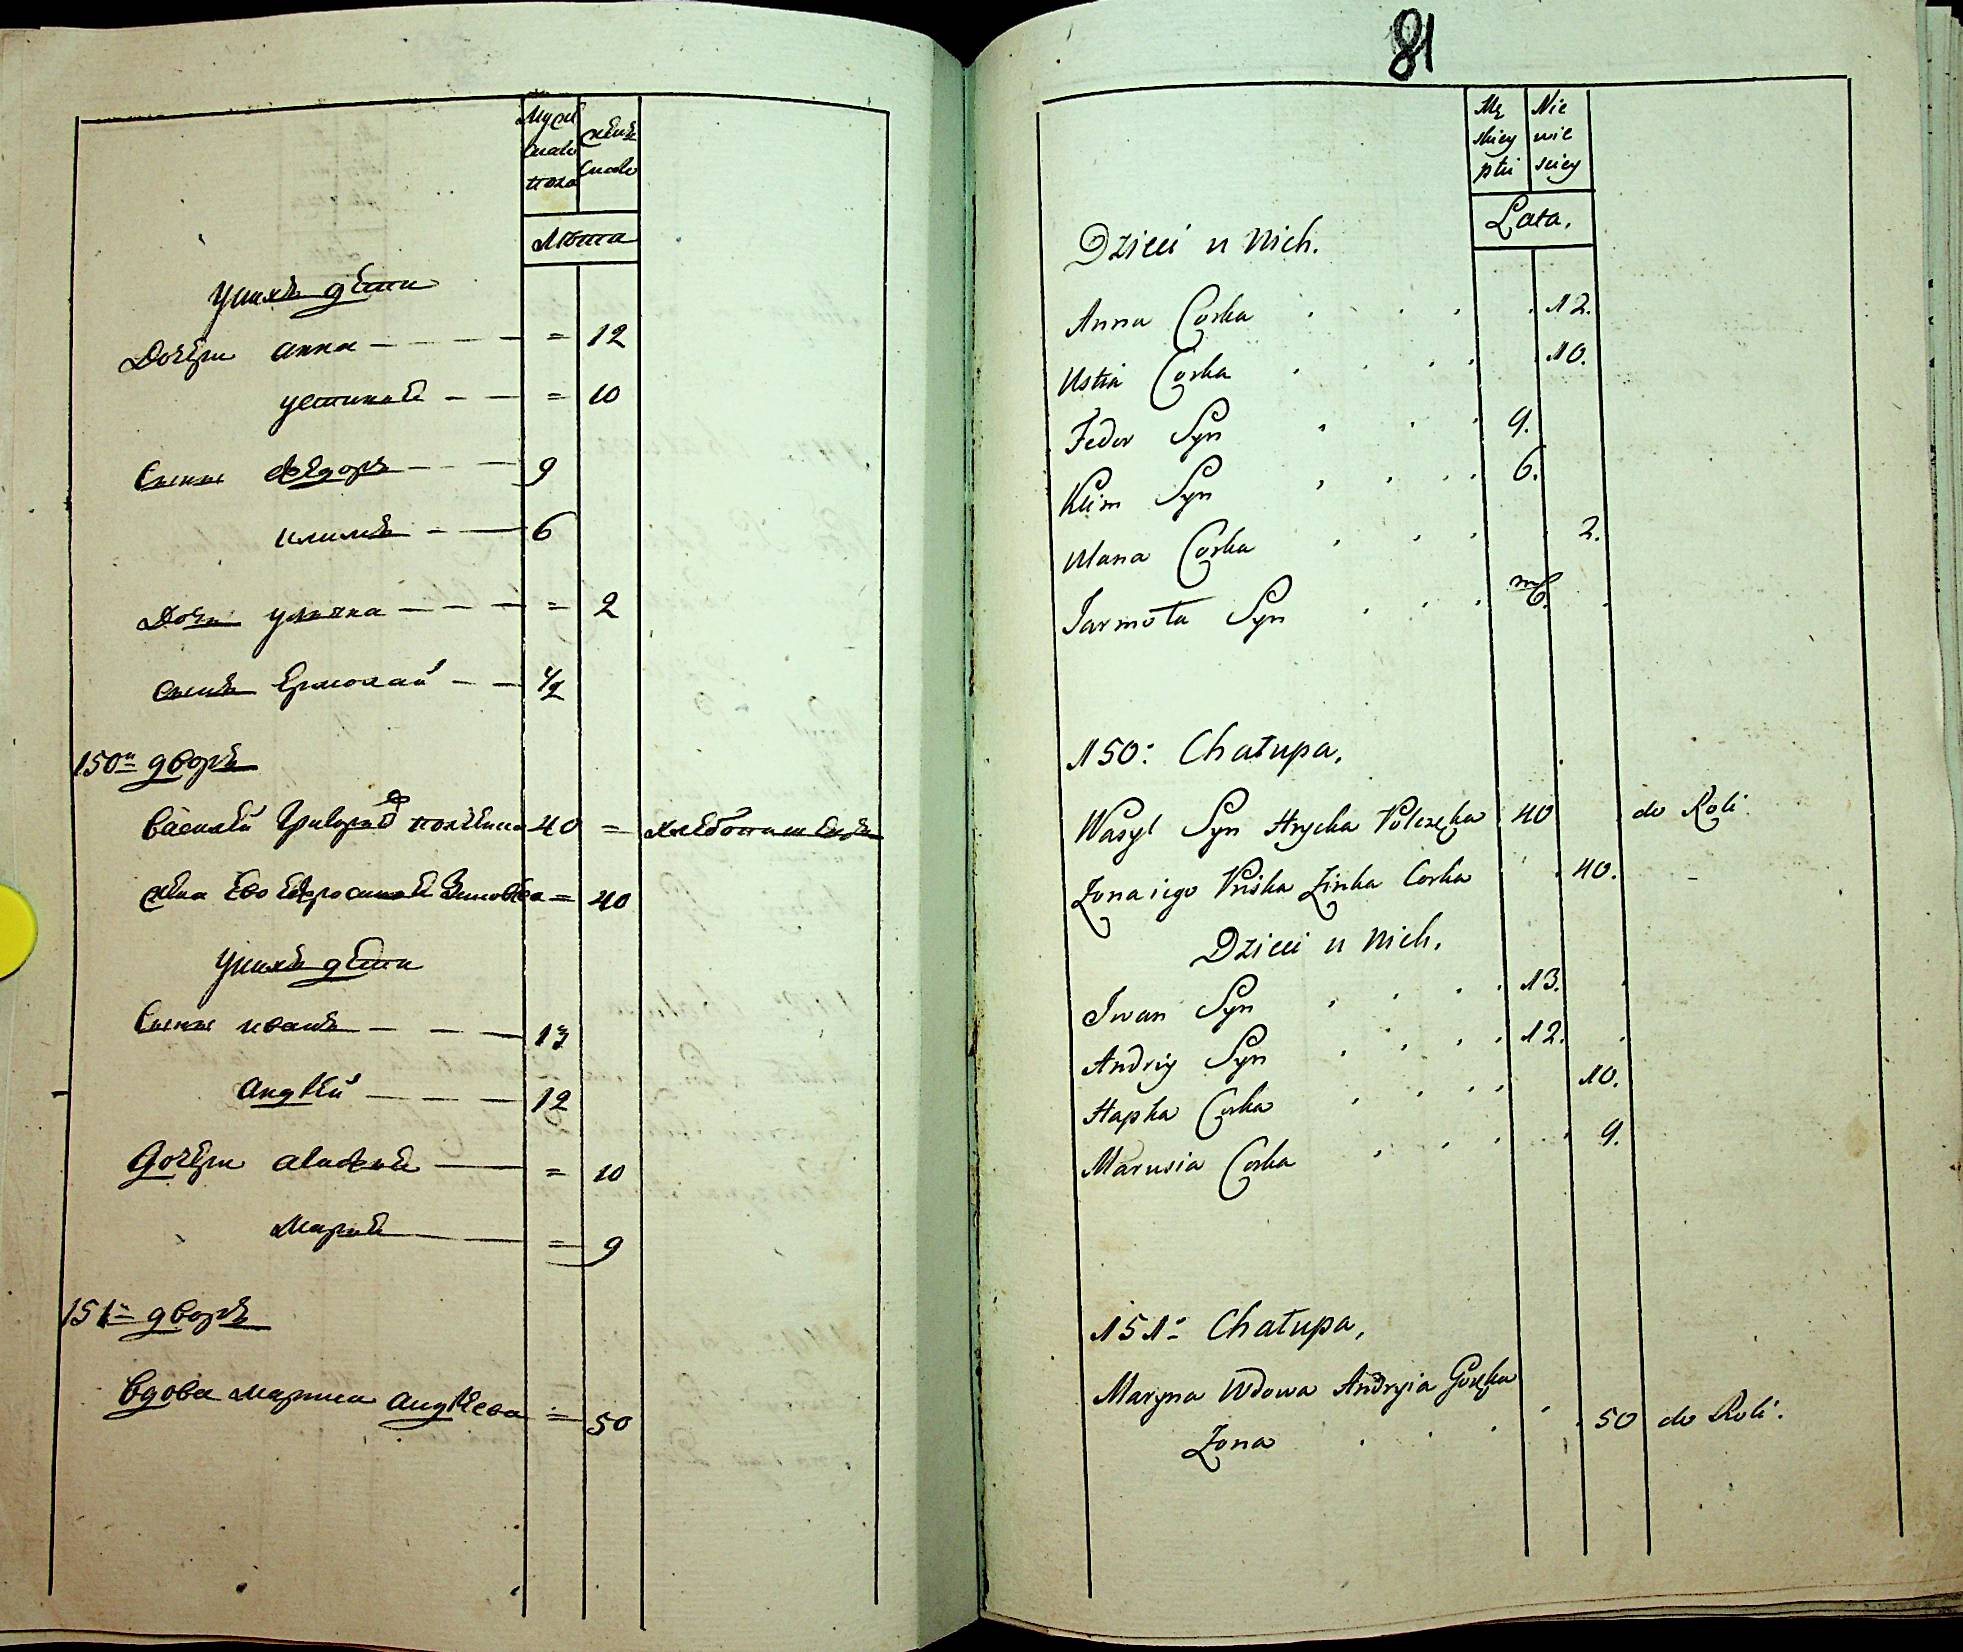 Мужеска пола
женска
Лѣта
У нихъ дѣти
Дочери Анна - - - = 12
Устинья - - = 10
Сыны Федоръ - - - 9
Климъ - - 6
Дочь Улияна - - - = 2
Сынъ Ермолай - - 1/2
150й дворъ
Василей Григорьевъ 40 = хлебопашецъ
жена Ево Ефросинья = 40
У нихъ дѣти
Сыны Иванъ - - - 13
Андрей - - - 12
Дочери Агафья - = 10
Марья - = 9
151й дворъ
Вдова Марина Андреева = 50
81
Mę skiey płci
Nie wie sciey
Lata.
Dzieci u Nich.
Anna Corka 12.
Ustia Corka 10.
Fedor Syn 9.
Klim Syn 6.
Ulana Corka 2.
Jarmoła Syn m 6.
150: Chałupa.
Wasyl Syn Hrycka 40 do Roli
Zona iego Priska Zinka Corka 40.
Dzieci u Nich.
Iwan Syn 13.
Andriy Syn 12.
Hapka Corka 10.
Marusia Corka 9.
151: Chałupa,
Maryna Wdowa Andryia
Zona 50 do Roli.